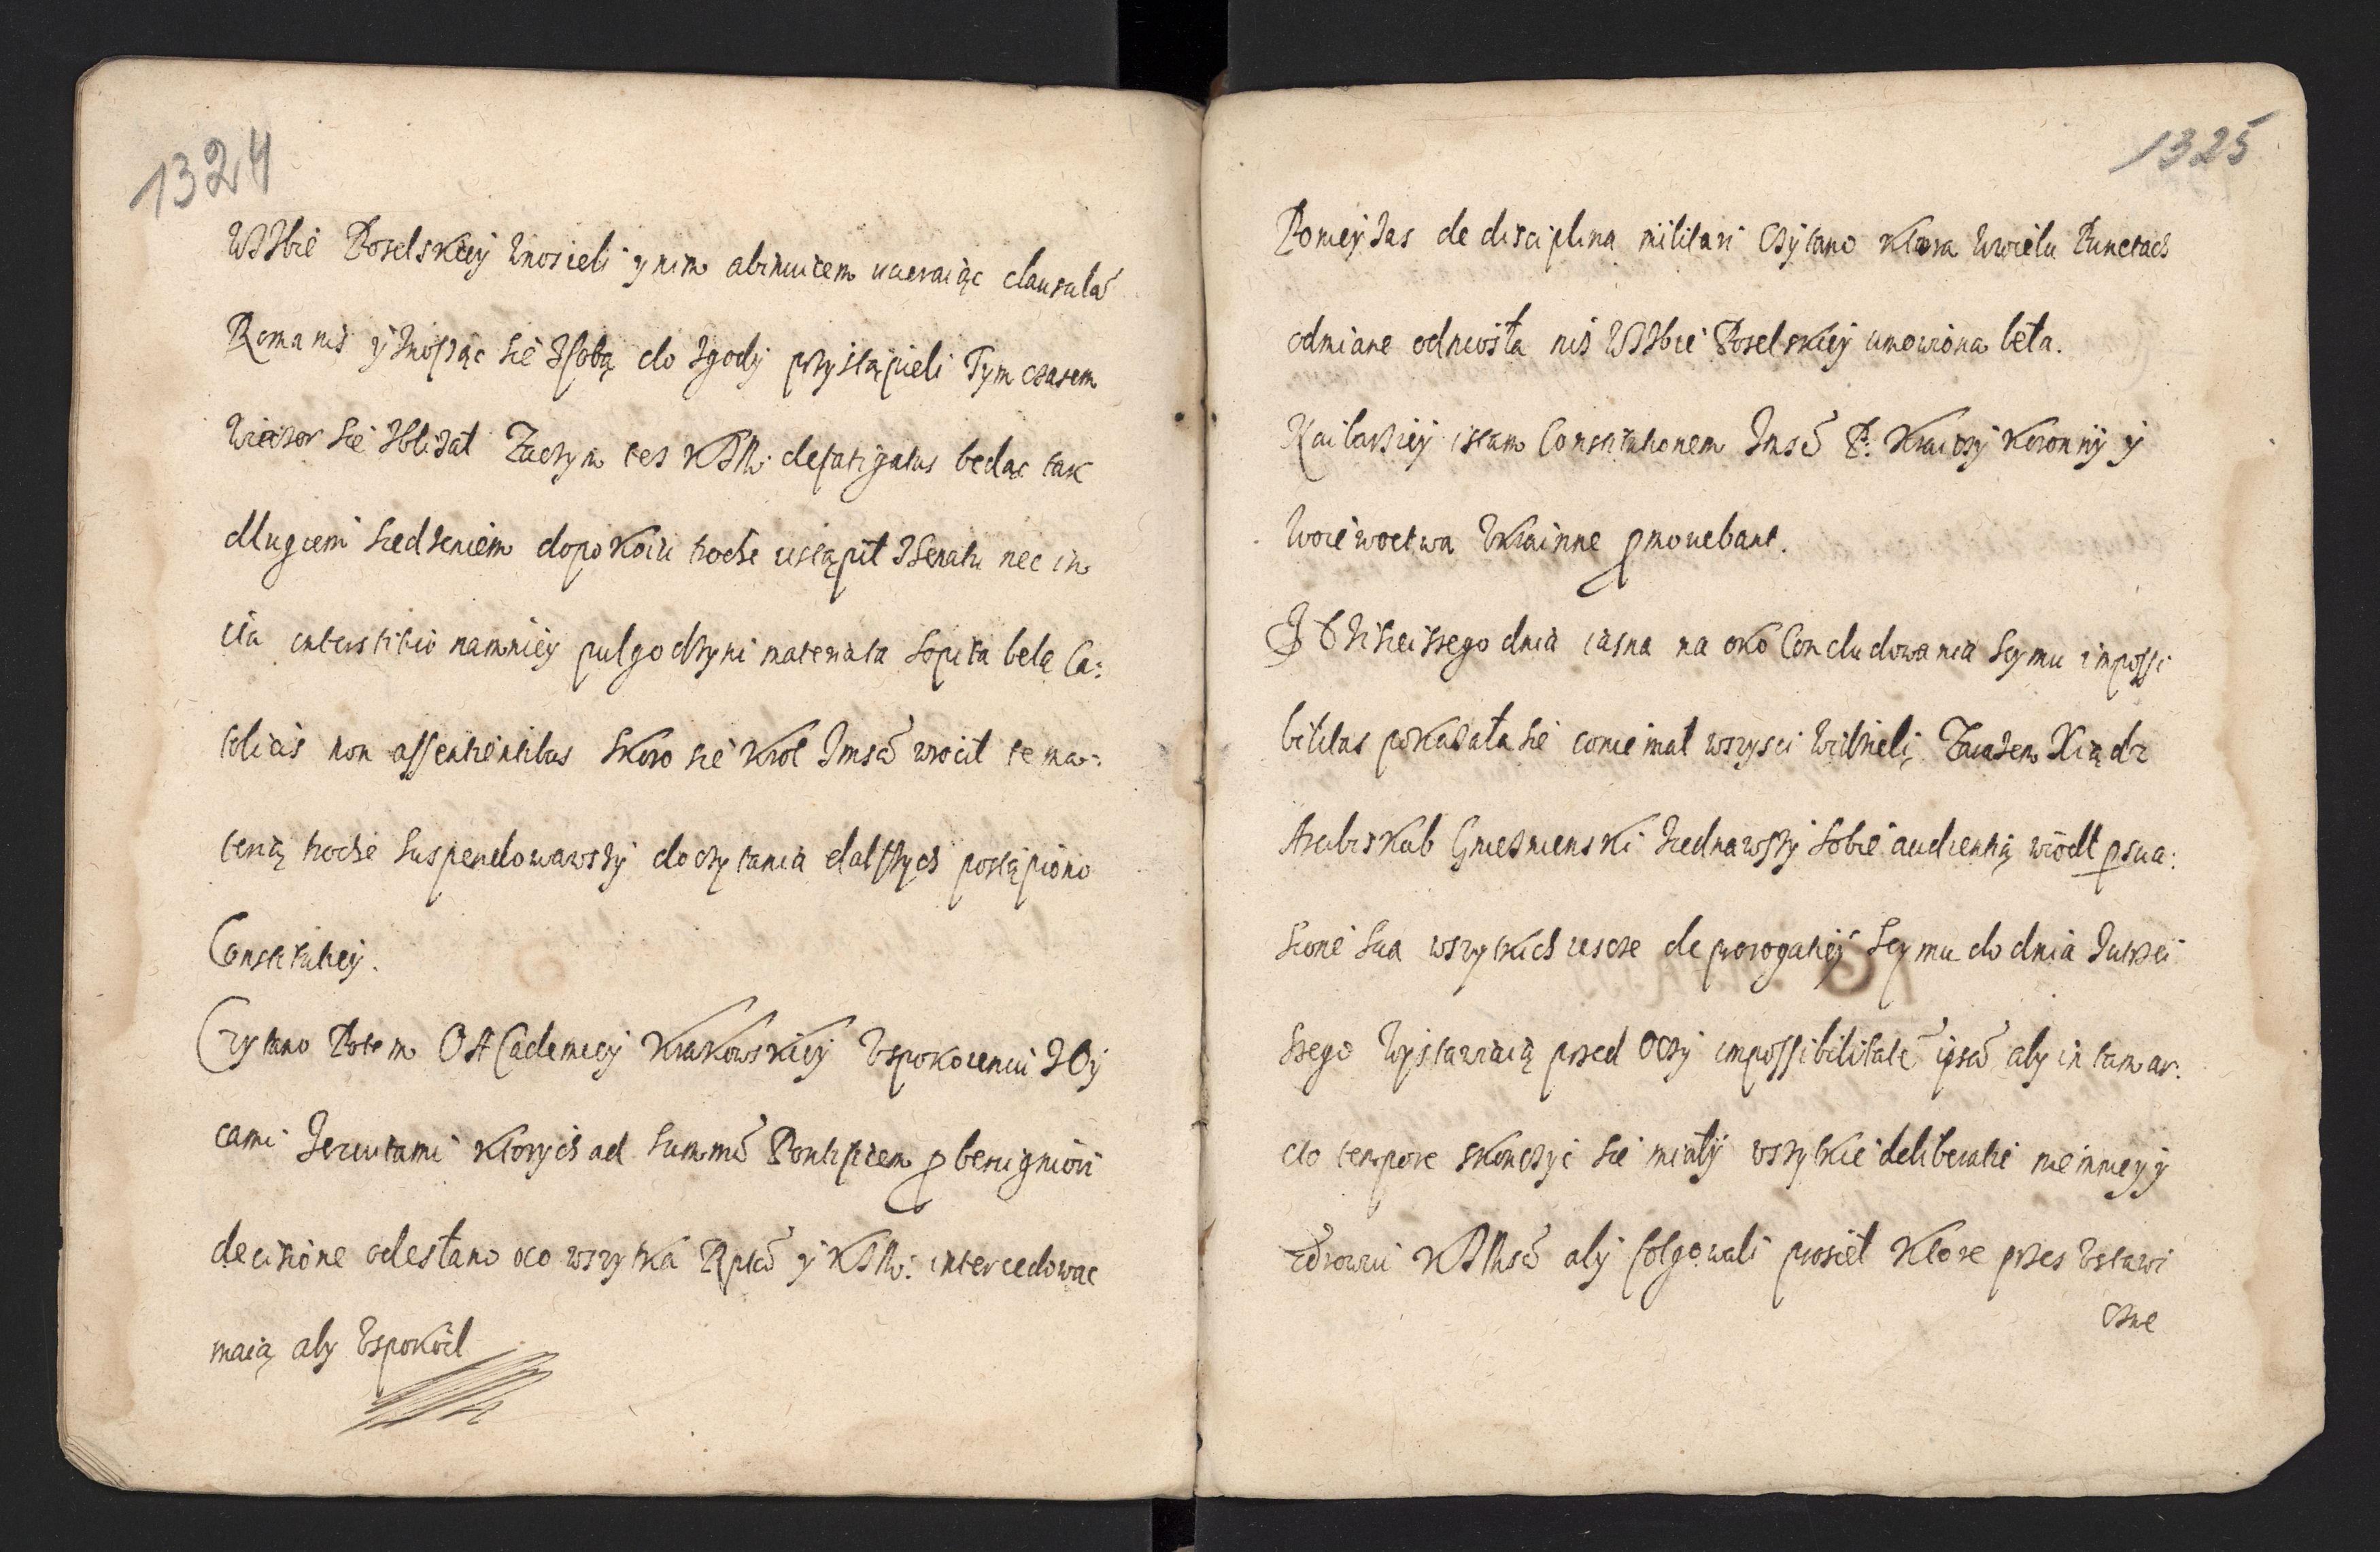 1324
WIzbie Poselskiey wnosieli y nim abinuicem ucieraiąc clausulā
Romanis y znosząc sie zsobą do zgody przystąpieli Tym czasem
wieczor sie zblizał Zaczym tes KIM: defatigatus bedąc tak
długiem siedzeniem dopokoiu troche ustąpił zSenatu nec in
ita interstitio namniey pulgodzyni materiata sopita bela Ca:
tolicis non assentientibus skoro sie Krol Imsć wrocil te ma:
terią troche suspendowawszy do czytania dalszych postąpiono
Constitutiey.
Czytano Potem O Academiey Krakowskiey Uspokoieniu z Oy
cami Jezuitami ktorych ad summū Pontificem p benigniori
decisione odesłano oco wszytka Rptā y KIM: intercedowac
maią aby Uspokoił
1325
Pomeyzas de disciplina militari Czytano ktora wwielu Punctach
odmiane odniosła niz WIzbie Poselskiey umowiona beła.
Naibarziey istam Constitutionem Imsć P: Kraiczy Koronny y
woiewoctwa Ukrainne pmouebant.
Iz dzisieiszego dnia iasna na oko Concludowania Seymu impossi
bilitas pokazała sie coniemal wszysci widzieli, Zaczem Xiądz
Arcibiskub Gnieznienski ziednawszy sobie audientią wiodł psua:
sione sua wszytkich iescze de prorogatiey Seymu do dnia Iutrzei
szego Wystawiaią przed Oczy impossibilitatē ipsā aby in tam ar:
cto tempore skonczyc sie miały wszytkie deliberatie nie inniey y
zdrowiu KIMsći aby folgowali prosiel ktore przes Ustawi
czne